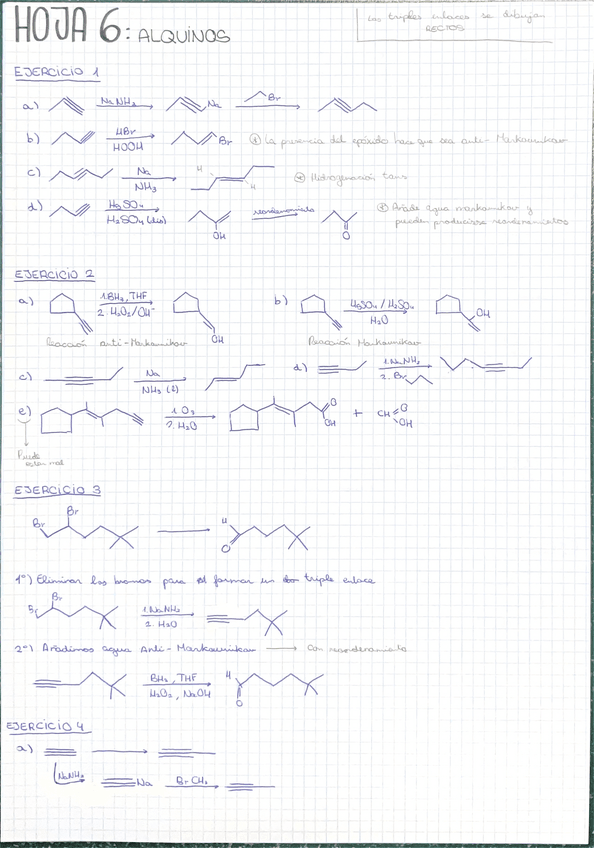 HOJA 6: ALQUINOS
Los triples enlaces se dibujan
RECTOS
EJERCICIO 1
a) NaNH₂ Na Br
b) HBr
HOOH
Br ① La presencia del epóxido hace que sea anti-Markovnikov
c) Na
NH₃
H H
② Hidrogenación tans
d) HgSO₄
H₂SO₄ (dis)
OH
reordenamiento
O
③ Añade agua markovnikov y
pueden producirse reordenamientos
EJERCICIO 2
a) 1. BH₃, THF
2. H₂O₂/OH⁻
OH
Reacción Anti-Markovnikov
b) HgSO₄/H₂SO₄
H₂O
OH
Reacción Markovnikov
c) Na
NH₃ (l)
d) 1. NaNH₂
2. Br
e) 1. O₃
2. H₂O
O
OH
+
CH
O
OH
Puede
estar mal
EJERCICIO 3
Br
Br
H
O
1º) Eliminar los bromos para formar un triple enlace
Br
1. NaNH₂
2. H₂O
2º) Añadimos agua Anti-Markovnikov → Con reordenamiento
BH₃, THF
H₂O₂, NaOH
H
O
EJERCICIO 4
a)
NaNH₂
Na
BrCH₃